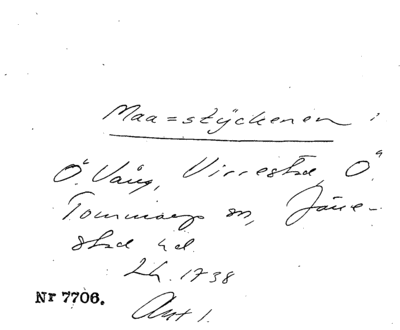 Maa=stÿckenen i
Ö. Vång, Virrestad, Ö.
Tommarp sn, Järre-
stad hd
Lh. 1738
Nr 7706.
Akt 1.